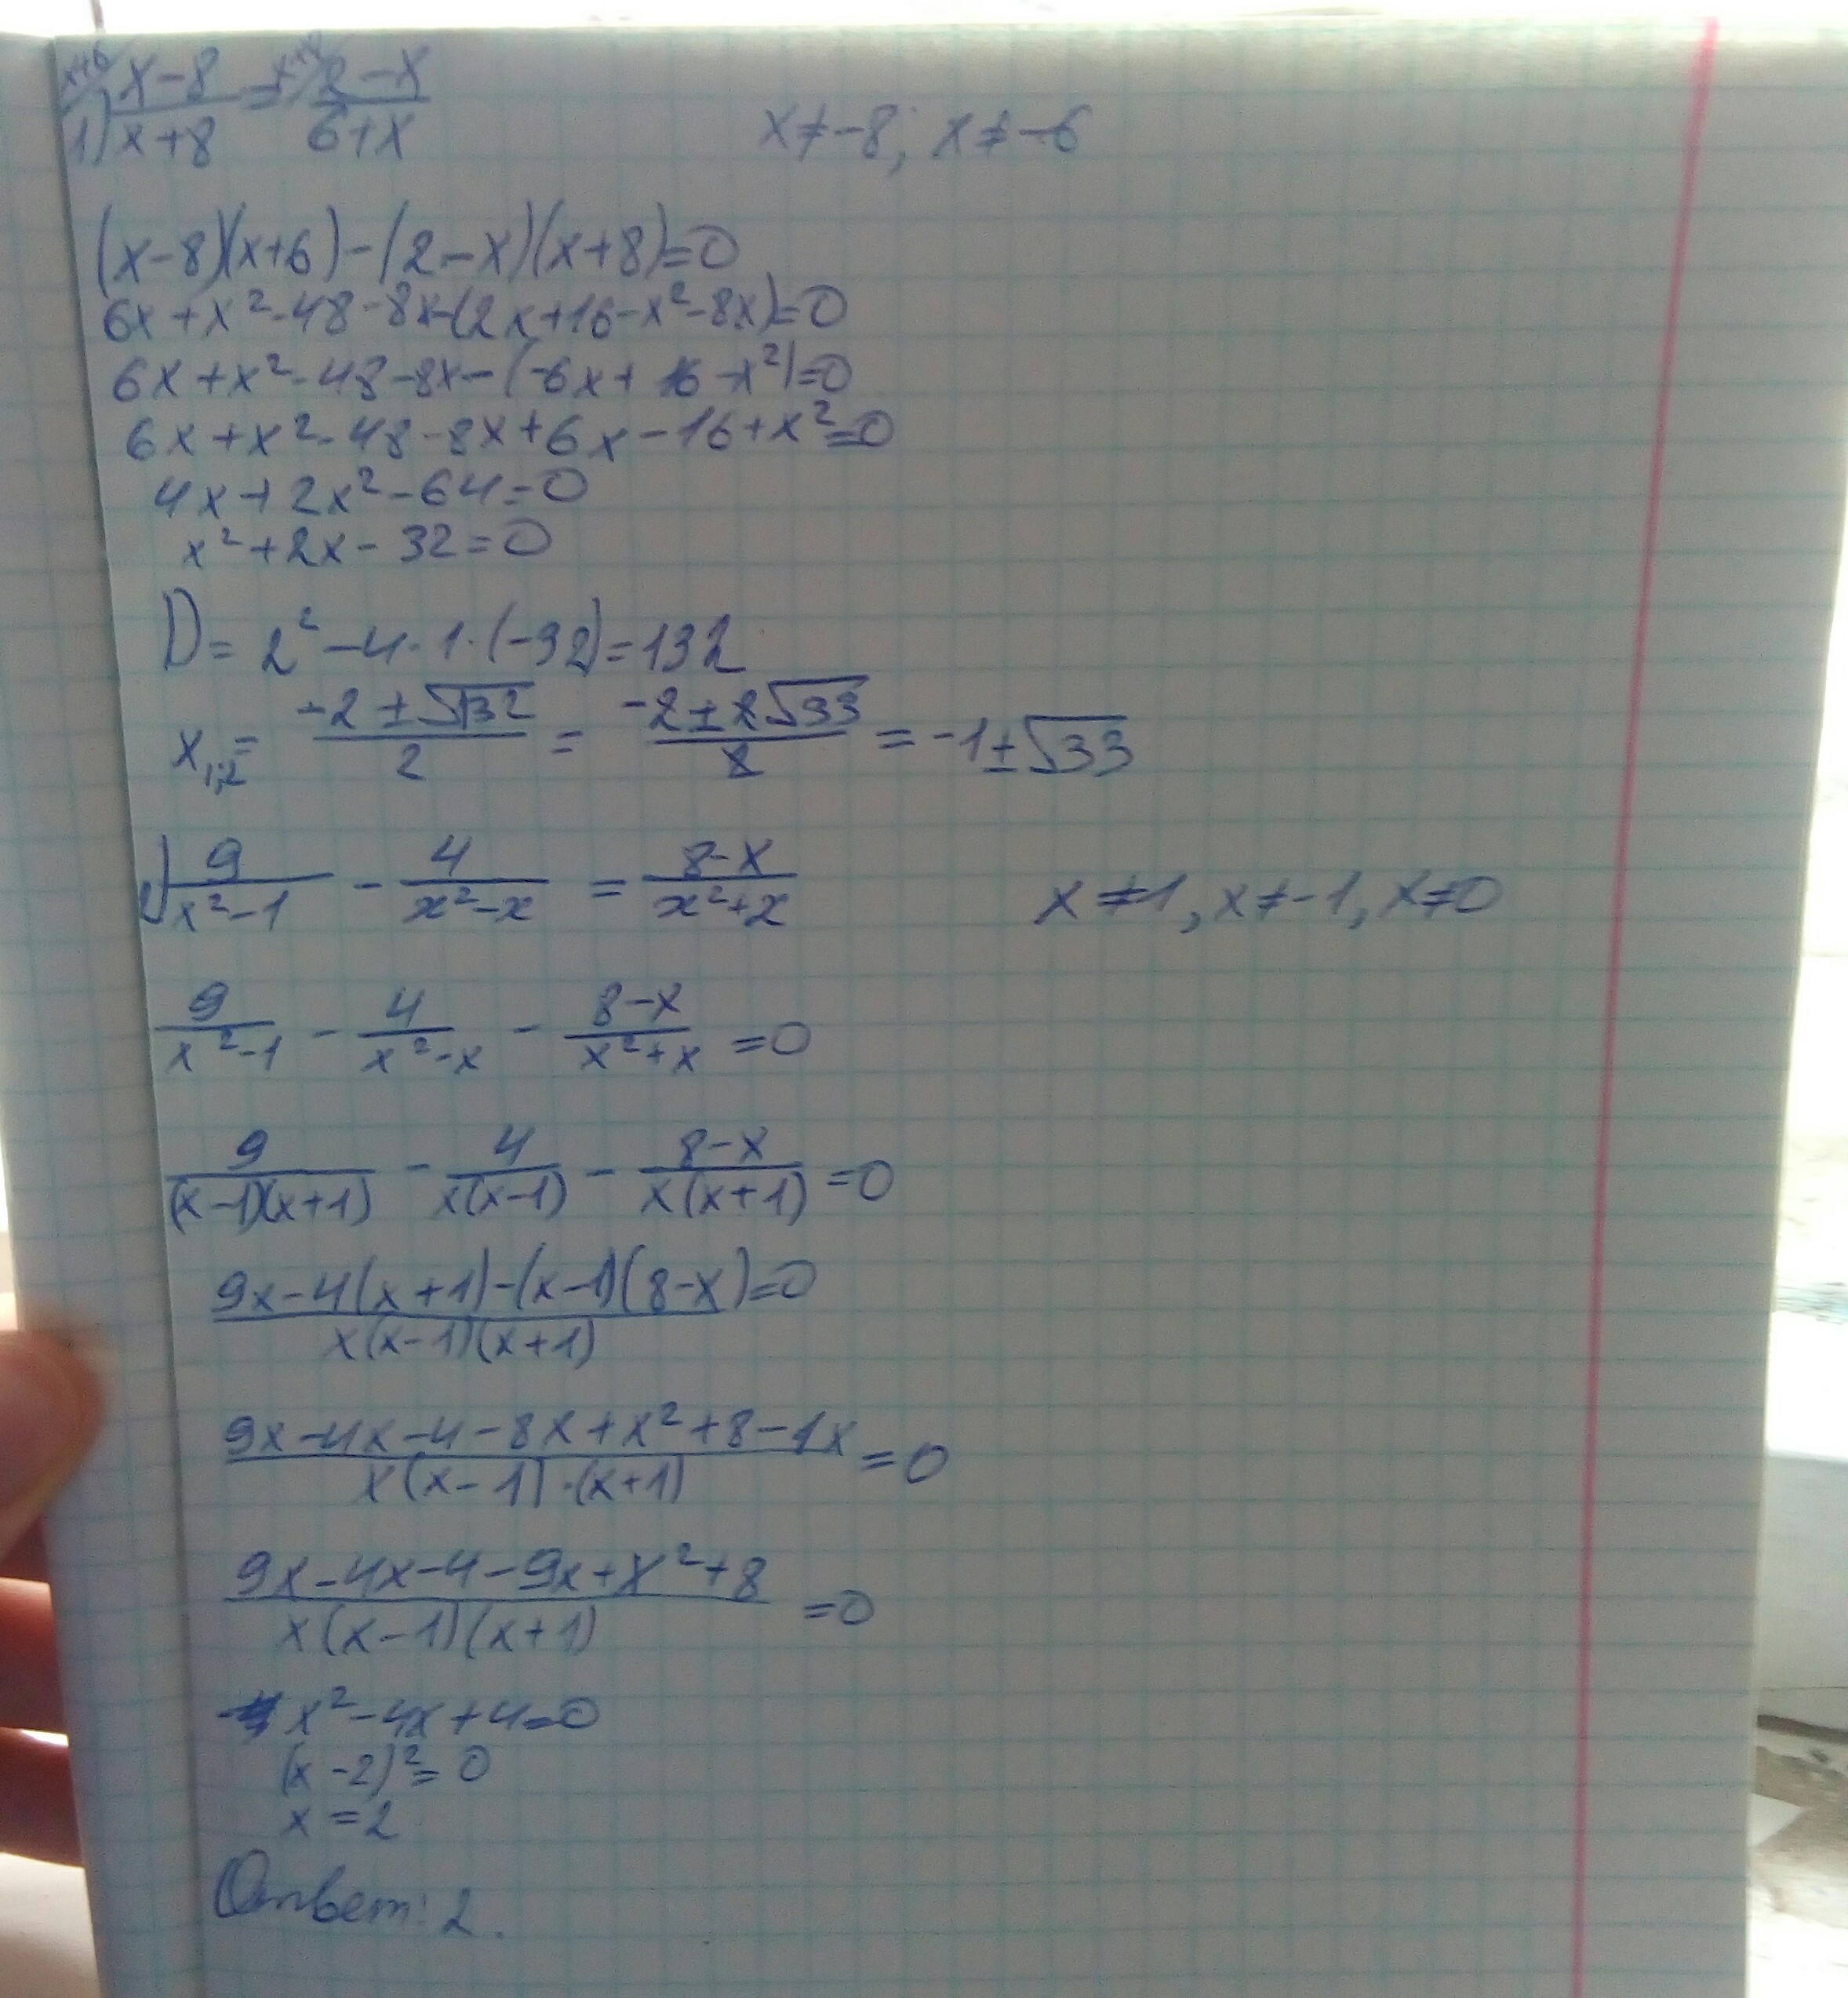 1) x+6/ (x-8)/(x+8) = x+8/ (2-x)/(6+x)    x≠-8; x≠-6
(x-8)(x+6)-(2-x)(x+8)=0
6x+x²-48-8x-(2x+16-x²-8x)=0
6x+x²-48-8x-(-6x+16-x²)=0
6x+x²-48-8x+6x-16+x²=0
4x+2x²-64=0
x²+2x-32=0
D=2²-4·1·(-32)=132
x₁,₂= (-2±√132)/2 = (-2±2√33)/2 = -1±√33
2) 9/(x²-1) - 4/(x²-x) = (8-x)/(x²+x)    x≠1, x≠-1, x≠0
9/(x²-1) - 4/(x²-x) - (8-x)/(x²+x) =0
9/((x-1)(x+1)) - 4/(x(x-1)) - (8-x)/(x(x+1)) =0
(9x-4(x+1)-(x-1)(8-x))/(x(x-1)(x+1)) =0
(9x-4x-4-8x+x²+8-1x)/(x(x-1)·(x+1)) =0
(9x-4x-4-9x+x²+8)/(x(x-1)(x+1)) =0
x²-4x+4=0
(x-2)²=0
x=2
Ответ: 2.